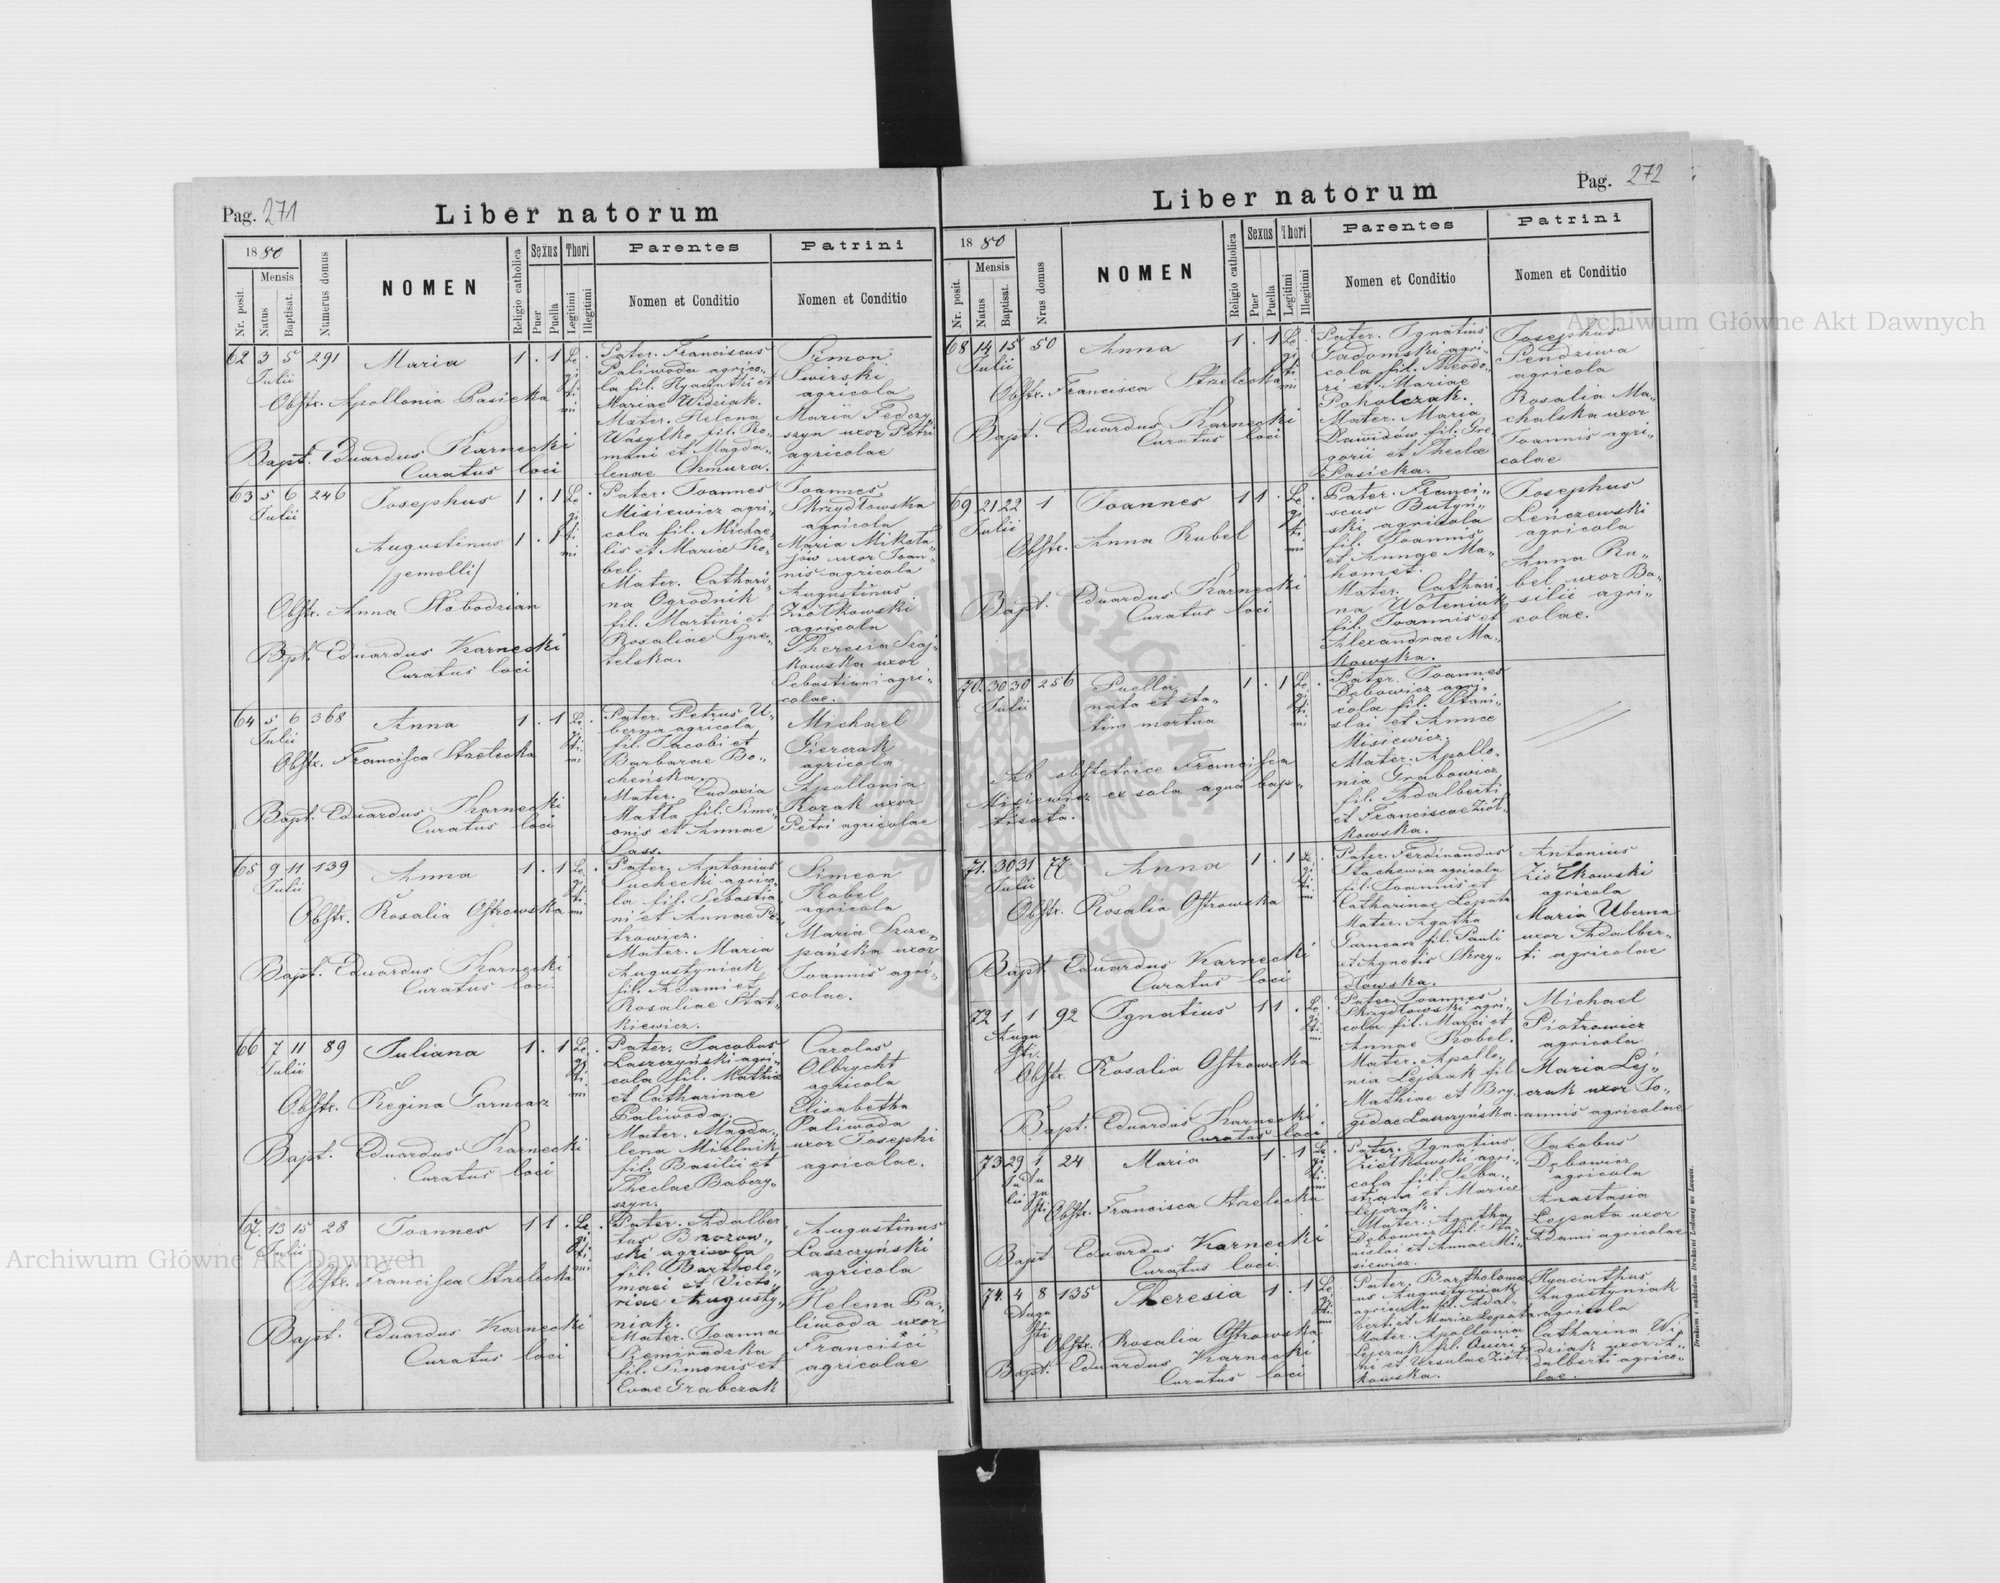 Pag. 271
Liber natorum
1880
Nr. posit.
Mensis
Natus
Baptisat.
Numerus domus
NOMEN
Religio catholica
Sexus
Puer
Puella
Thori
Legitimi
Illegitimi
Parentes
Nomen et Conditio
Patrini
Nomen et Conditio
62 3 5 291 Maria 1 . 1 Le
Julii
gi
ti
mi
Obstr. Apollonia Pasicka
Bapt. Eduardus Karnecki
Curatus loci
Pater. Franciscus
Paliwoda agrico-
la fil. Hyacinthi et
Mariae Widziak.
Mater. Helena
Wasylko fil. Ro-
mani et Magda-
lenae Chmura.
Simon
Swirski
agricola
Maria Fedczy
szyn uxor Petri
agricolae
63 5 6 246 Josephus 1 . 1 Le
Julii
gi
ti
mi
Augustinus 1 . 1
/jemelli/
Obstr. Anna Slobodzian
Bpt. Eduardus Karnecki
Curatus loci
Pater. Joannes
Misiewicz agri-
cola fil. Michae-
lis et Mariae Ko-
bel.
Mater. Cathari-
na Ogrodnik
fil. Martini et
Rosaliae
telska.
Joannes
Skrzydłowska
agricola
Maria Mikoła-
jów uxor Joan-
nis agricola
Augustinus
Ziółkowski
agricola
Theresia
kowska uxor
Sebastiani agri-
colae.
64 5 6 368 Anna 1 . 1 Le
Julii
gi
ti
mi
Obstr. Francisca Strzelecka
Bapt. Eduardus Karnecki
Curatus loci
Pater. Petrus U-
berna agricola
fil. Jacobi et
Barbarae Bo-
cheńska.
Mater. Eudoxia
Matła fil. Sime-
onis et Annae
Sass.
Michael
Gierczak
agricola
Apollonia
Kozak uxor
Petri agricolae
65 9 11 139 Anna 1 . 1 Le
Julii
gi
ti
mi
Obstr. Rosalia Ostrowska
Bapt. Eduardus Karnecki
Curatus loci.
Pater. Antonius
Suchecki agrico-
la fil. Sebastia
ni et Annae Pe-
trowicz.
Mater. Maria
Augustyniak
fil. Adami et
Rosaliae Stat-
kiewicz.
Simeon
Kobel
agricola
Maria Szcze-
pańska uxor
Joannis agri-
colae.
66 7 11 89 Juliana 1 . 1 Le
Julii
gi
ti
mi
Obstr. Regina Garncarz
Bapt. Eduardus Karnecki
Curatus loci
Pater. Jacobus
Laszczyński agri-
cola fil. Mathiae
et Catharinae
Paliwoda.
Mater. Magda-
lena Mielnik
fil. Basilii et
Theclae Babczy-
szyn.
Carolus
Olbrycht
agricola
Elisabetha
Paliwoda
uxor Josephi
agricolae.
67. 13 15 28 Joannes 1 1 . Le
Julii
gi
ti
mi
Obstr. Francisca Strzelecka
Bapt. Eduardus Karnecki
Curatus loci
Pater. Adalber
tus Brzozow-
ski agricola
fil. Bartholo-
maei et Victo-
riae Augusty-
niak.
Mater. Joanna
Siemiradzka
fil. Simonis et
Evae Grabczak
Augustinus
Laszczyński
agricola
Helena Pa-
liwoda uxor
Francisci
agricolae
Pag. 272
Liber natorum
1880
Nr. posit.
Mensis
Natus
Baptisat.
Nrus domus
NOMEN
Religio catholica
Sexus
Puer
Puella
Thori
Legitimi
Illegitimi
Parentes
Nomen et Conditio
Patrini
Nomen et Conditio
68 14 15 50 Anna 1 . 1 Le
Julii
gi
ti
mi
Obstr. Francisca Strzelecka
Bapt. Eduardus Karnecki
Curatus loci
Pater. Ignatius
Gadomski agri-
cola fil. Theodo-
ri et Mariae
Poholczak.
Mater. Maria
Dawidów fil. Gre-
gorii et Theclae
Pasicka.
Josephus
Pendziwa
agricola
Rosalia Ma-
chalska uxor
Joannis agri-
colae
69 21 22 1 Joannes 1 1 . Le
Julii
gi
ti
mi
Obstr. Anna Rubel
Bapt. Eduardus Karnecki
Curatus loci
Pater. Franci-
scus Butyń-
ski agricola
fil. Joannis
et Annae Ma-
homet.
Mater. Cathari-
na Woleniuk
fil. Joannis et
Alexandrae Ma-
kowska.
Josephus
Leńczewski
agricola
Anna Ru-
bel uxor Ba-
silii agri-
colae.
70. 30 30 256 Puella 1 . 1 Le
Julii
gi
ti
mi
nata et sta-
tim mortua
Ab obstetrice Francisca
Misiewicz ex sola aqua bap-
tisata.
Pater. Joannes
Dębowicz agri-
cola fil. Stani-
slai et Annae
Misiewicz.
Mater. Apollo-
nia Grabowicz
fil. Adalberti
et Franciscae Ziół-
kowska.
71. 30 31 77 Anna 1 . 1 Le
Julii
gi
ti
mi
Obstr. Rosalia Ostrowska
Bapt. Eduardus Karnecki
Curatus loci
Pater. Ferdinandus
Stachewicz agricola
fil. Joannis et
Catharinae Lopata
Mater. Agatha
Garncarz fil. Pauli
et Agnetis Skrzy-
dłowska.
Antonius
Ziółkowski
agricola
Maria Uberna
uxor Adalber-
ti agricolae
72 1 1 92 Ignatius 1 1 . Le
Augu
sti.
gi
ti
mi
Obstr. Rosalia Ostrowska
Bapt. Eduardus Karnecki
Curatus loci
Pater. Joannes
Skrzydłowski agri-
cola fil. Marci et
Annae Kobel.
Mater. Apollo-
nia Lejczak fil
Mathiae et Bry-
gidae Laszczyńska.
Michael
Piotrowicz
agricola
Maria Lej-
czak uxor Jo-
annis agricolae
73 29 1 24 Maria 1 . 1 Le
Ju
lii
Au
gu
sti
gi
ti
mi
Obstr. Francisca Strzelecka
Bapt Eduardus Karnecki
Curatus loci.
Pater. Ignatius
Ziółkowski agri-
cola fil. Seba-
stiani et Mariae
Lejczak.
Mater. Agatha
Dębowicz fil. Sta-
nislai et Annae Mi-
siewicz.
Jakobus
Dębowicz
agricola
Anastasia
Lopata uxor
Adami agricolae
74. 4 8 135 Theresia 1 . 1 Le
Augu
sti
gi
ti
mi
Obstr. Rosalia Ostrowska
Bapt. Eduardus Karnecki
Curatus loci
Pater. Bartholomae
us Augustyniak
agricola fil. Adal-
berti et Mariae Lopata
Mater. Apollonia
Lejczak fil. Quiri-
ni et Ursulae Ziół-
kowska.
Hyacinthus
Augustyniak
agricola
Catharina Wi-
dziak uxor A-
dalberti agrico-
lae.
Drukiem i nakładem Drukarni Ludowej we Lwowie.
Archiwum Główne Akt Dawnych
Archiwum Główne Akt Dawnych